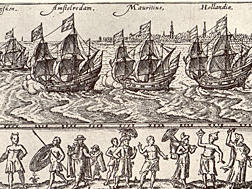 Amstelredam, Mauritius, Hollandia